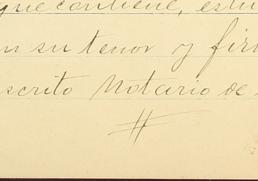 que contiene, estu
n su tenor y fir
scrito Notario de